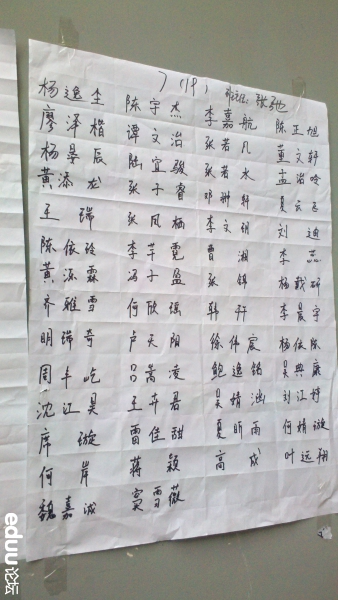 7(19) 班主任: 张弛
杨逸尘 陈宇杰 李嘉航 陈正旭
廖泽楷 谭文治 张若凡 董文轩
杨景辰 陆宜骏 张若水 孟治吟
黄添龙 张子睿 邓翀轩 夏云飞
王瑞 张凤栖 李文玥 刘迪
陈依玲 李芊霓 曹湘 李蕊
黄源霖 冯子盈 张锦 杨戴研
齐雅雪 何欣瑶 韩轩 李晨宇
明瑞奇 卢天阳 徐伟宸 杨依依
周丰屹 吕嵩凌 鲍逸铭 吴典康
沈江昊 王卉君 吴婧涵 刘江婷
席璇 雷佳甜 夏昕雨 何婧璇
何岸 蒋颖 高成 叶远翔
魏嘉诚 窦雪薇
eduu论坛